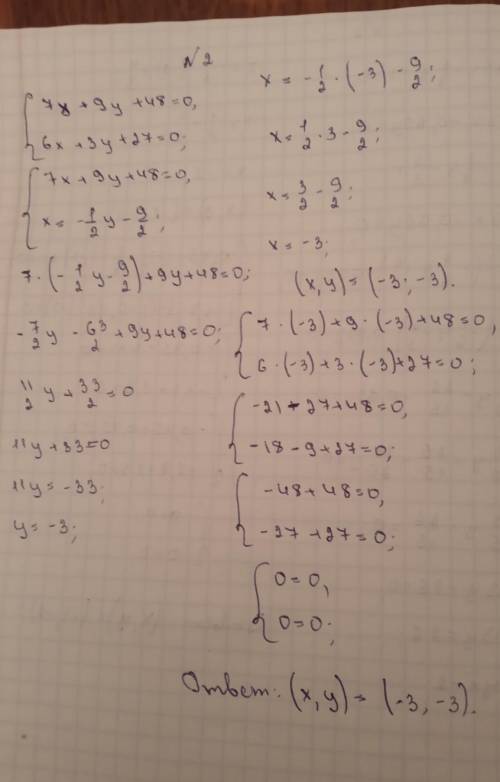 №2
{ 7x + 9y + 48 = 0,
{ 6x + 3y + 27 = 0;
{ 7x + 9y + 48 = 0,
{ x = -1/2 y - 9/2;
7 · (-1/2 y - 9/2) + 9y + 48 = 0;
-7/2 y - 63/2 + 9y + 48 = 0;
11/2 y + 33/2 = 0
11y + 33 = 0
11y = -33;
y = -3;
x = -1/2 · (-3) - 9/2;
x = 1/2 · 3 - 9/2;
x = 3/2 - 9/2;
x = -3;
(x, y) = (-3; -3).
{ 7 · (-3) + 9 · (-3) + 48 = 0,
{ 6 · (-3) + 3 · (-3) + 27 = 0;
{ -21 - 27 + 48 = 0,
{ -18 - 9 + 27 = 0;
{ -48 + 48 = 0,
{ -27 + 27 = 0;
{ 0 = 0,
{ 0 = 0;
Ответ: (x, y) = (-3, -3).